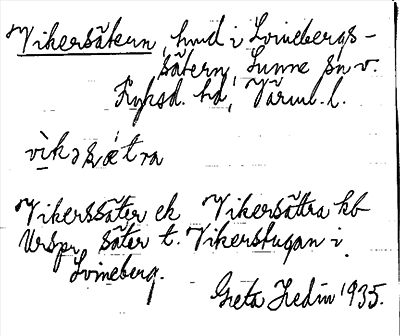 Vikersätern, hmd i Lvinebergs-
sätern, Sunne sn v.
Fryksd. hd, Värml. l.
vìkəṣætra
Vikerssäter ek Vikersättra kb
Urspr. säter t. Vikerstugan i
Lvineberg.
Greta Hedin 1935.